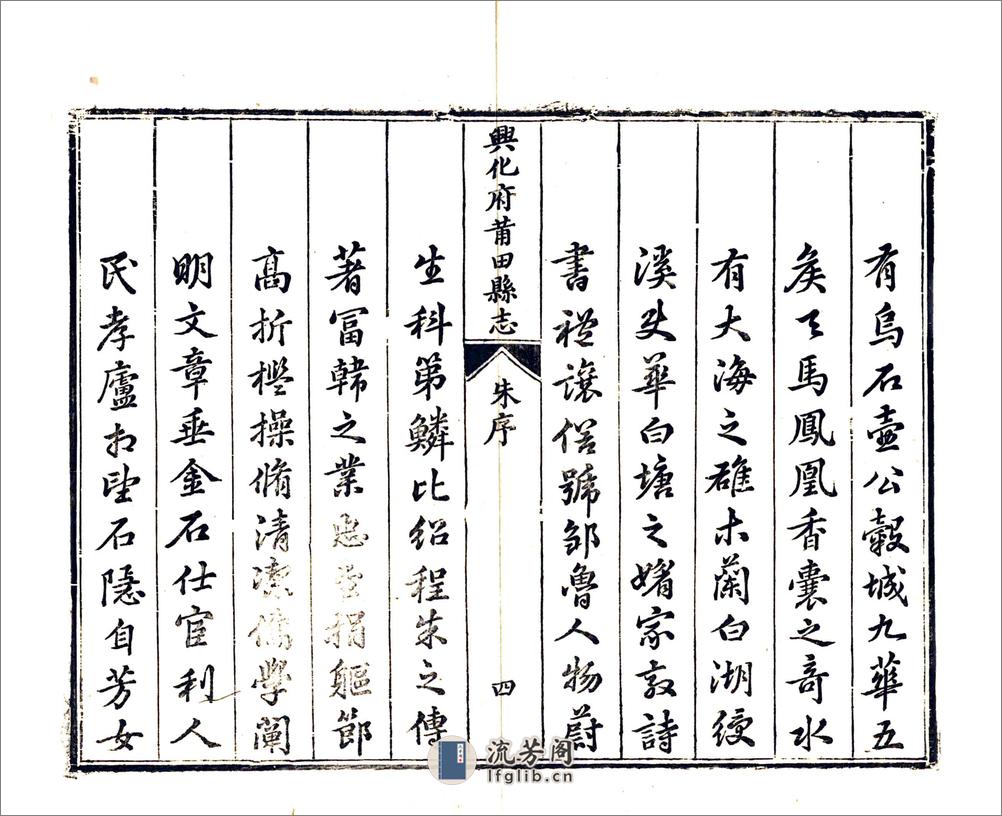 有烏石壺公穀城九華五
矦天馬鳳凰香囊之奇水
有大海之礁木蘭白湖綬
溪華白塘之家敦詩
書禮讓俗號鄒魯人物蔚
興化府莆田縣志
朱序
四
生科第鱗比紹程朱之傳
著冨韓之業忠捐軀節
髙折檻操脩清潔儒學闡
明文章垂金石仕宦利人
民孝廬相望石隱自芳女
流芳阁
lfglib.cn